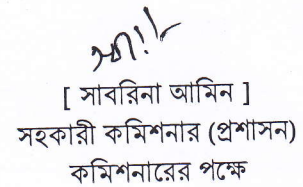 [ সাবরিনা আমিন ]
সহকারী কমিশনার (প্রশাসন)
কমিশনারের পক্ষে